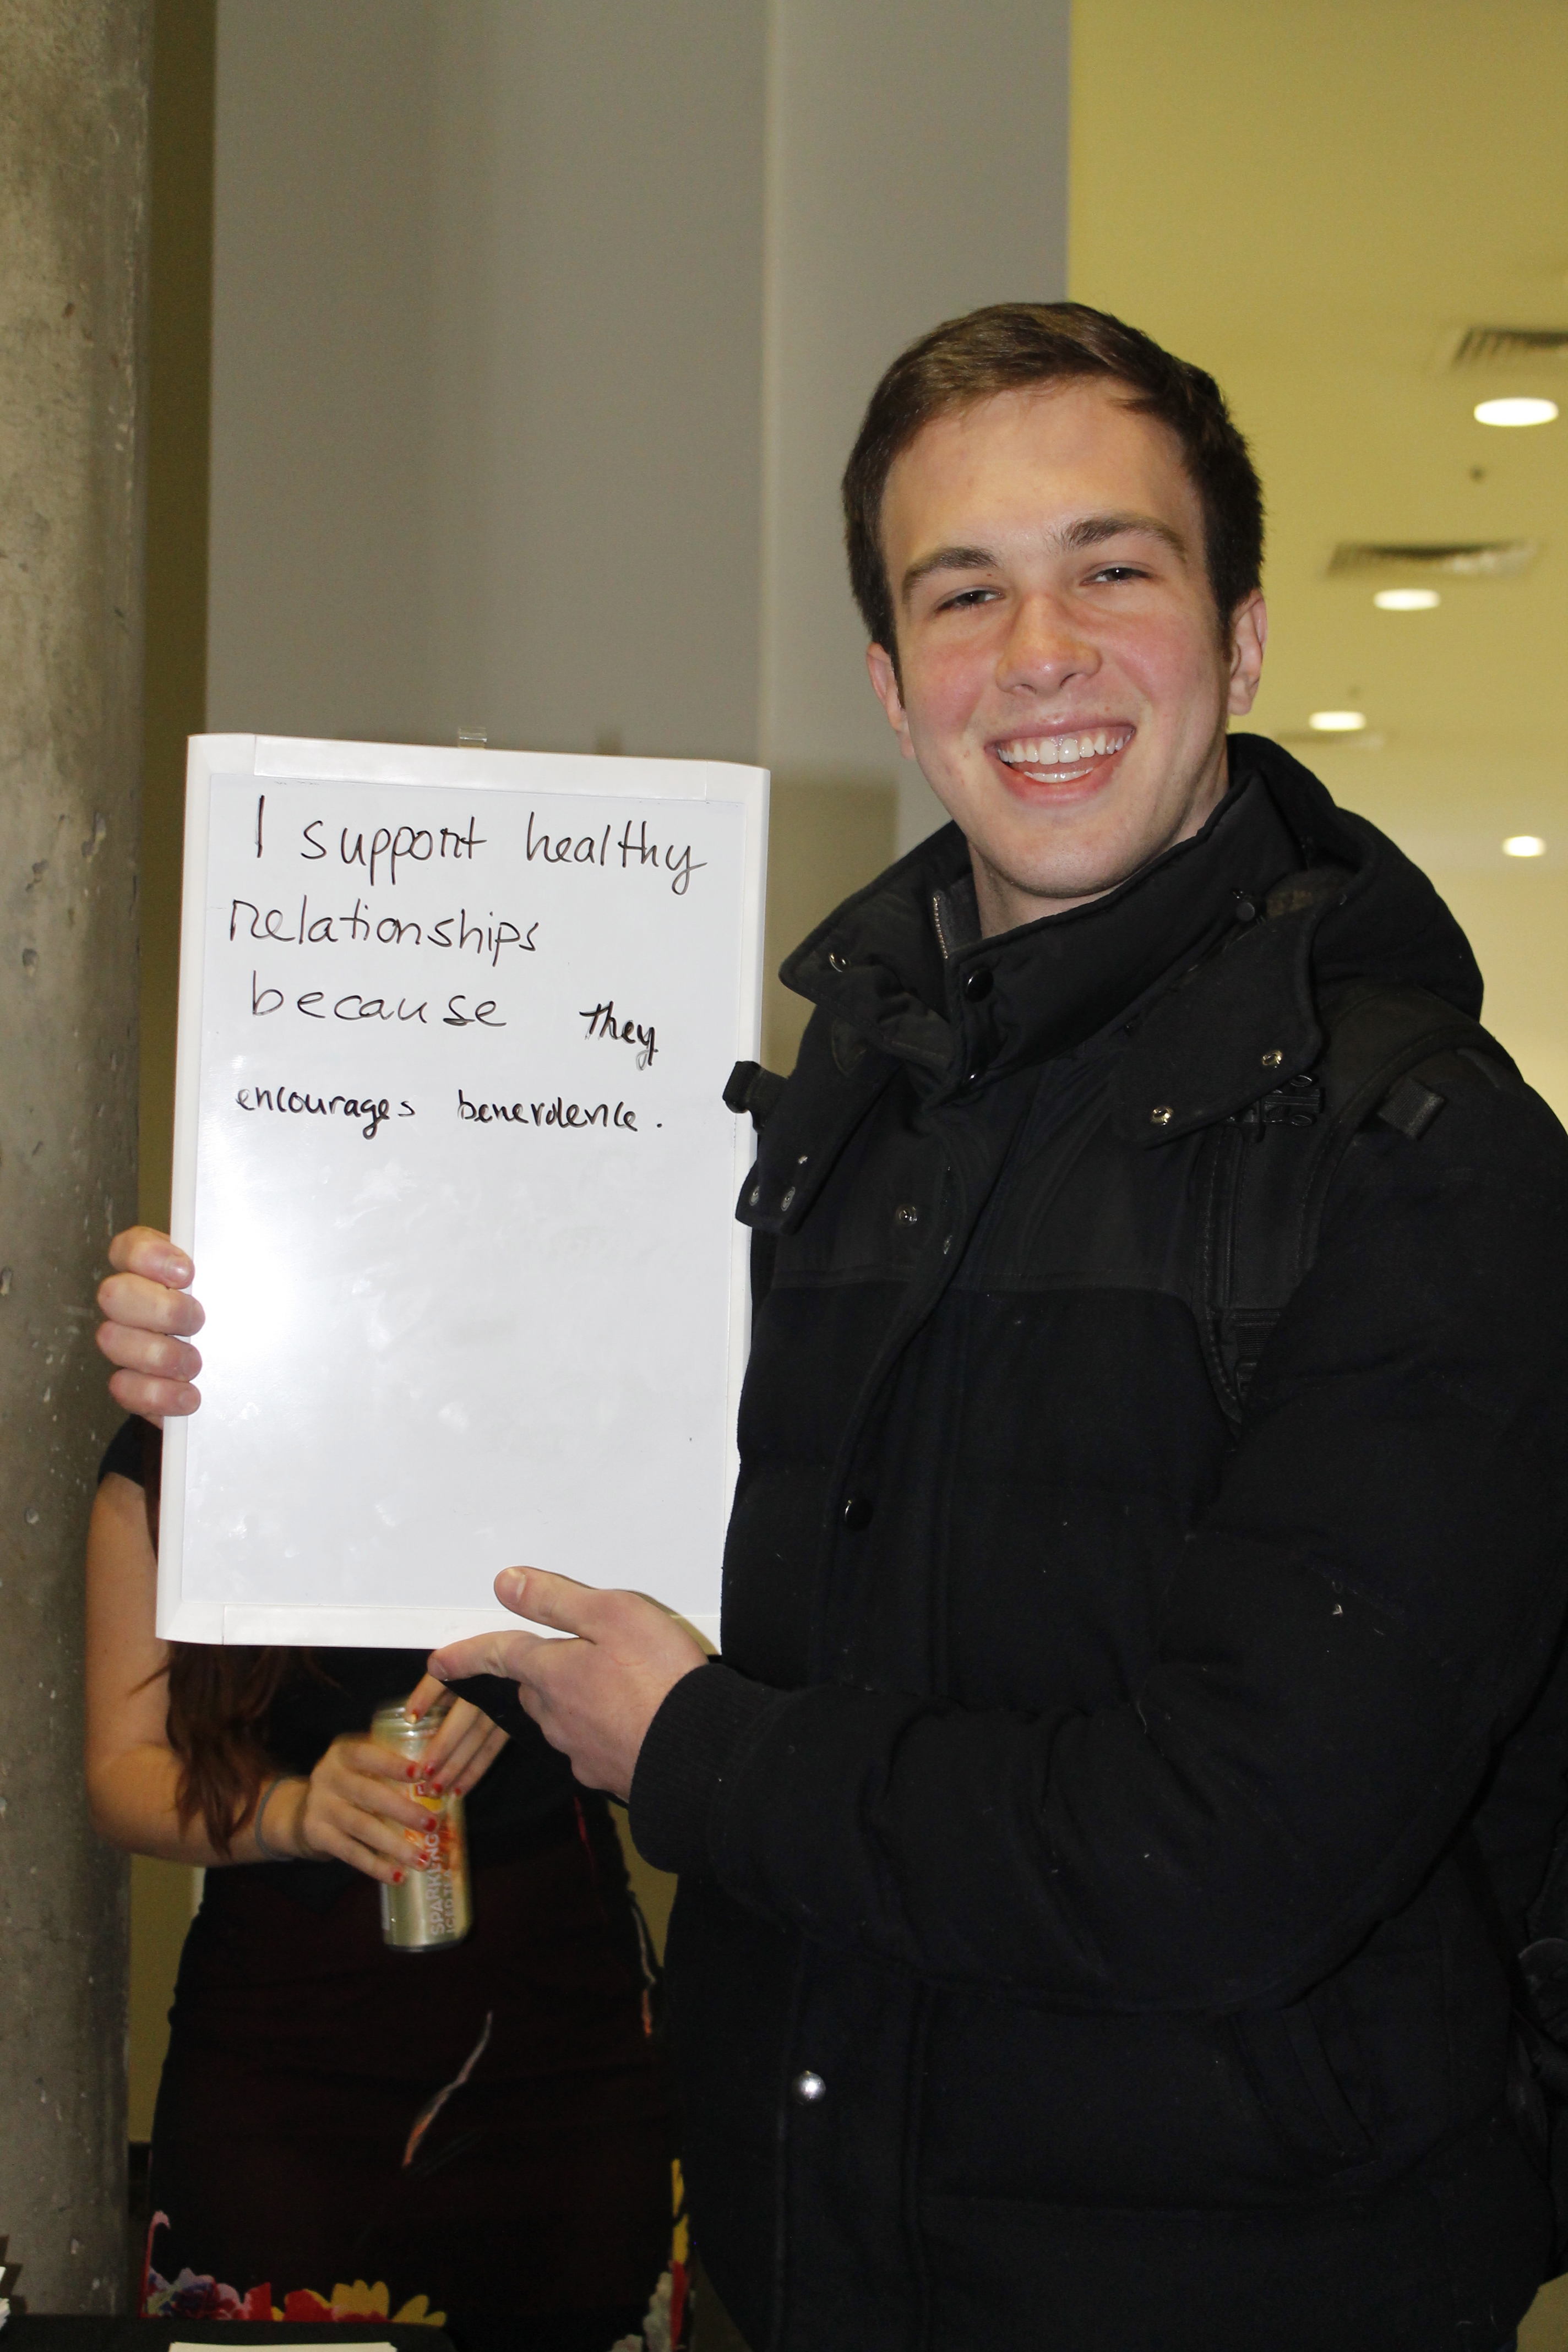 I support healthy
relationships
because they
encourages benevolence.
SPARKLING
ICED TEA